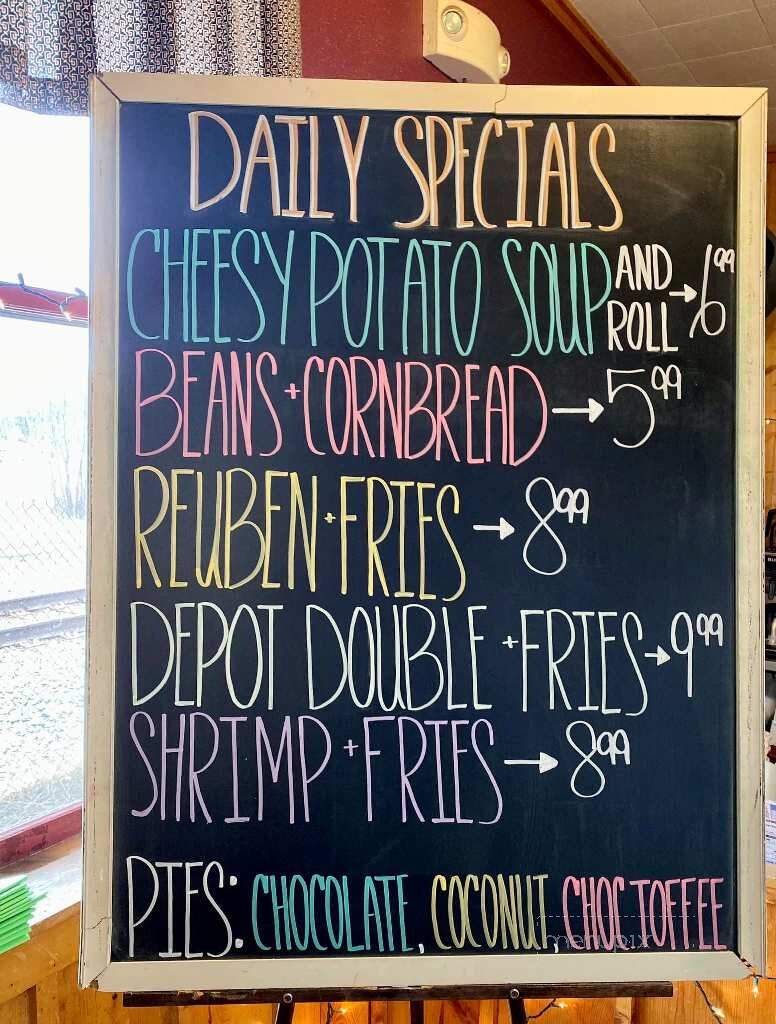 DAILY SPECIALS
CHEESY POTATO SOUP AND ROLL → 6.99
BEANS + CORNBREAD → 5.99
REUBEN + FRIES → 8.99
DEPOT DOUBLE + FRIES → 9.99
SHRIMP + FRIES → 8.99
PIES: CHOCOLATE, COCONUT, CHOC TOFFEE
menupix